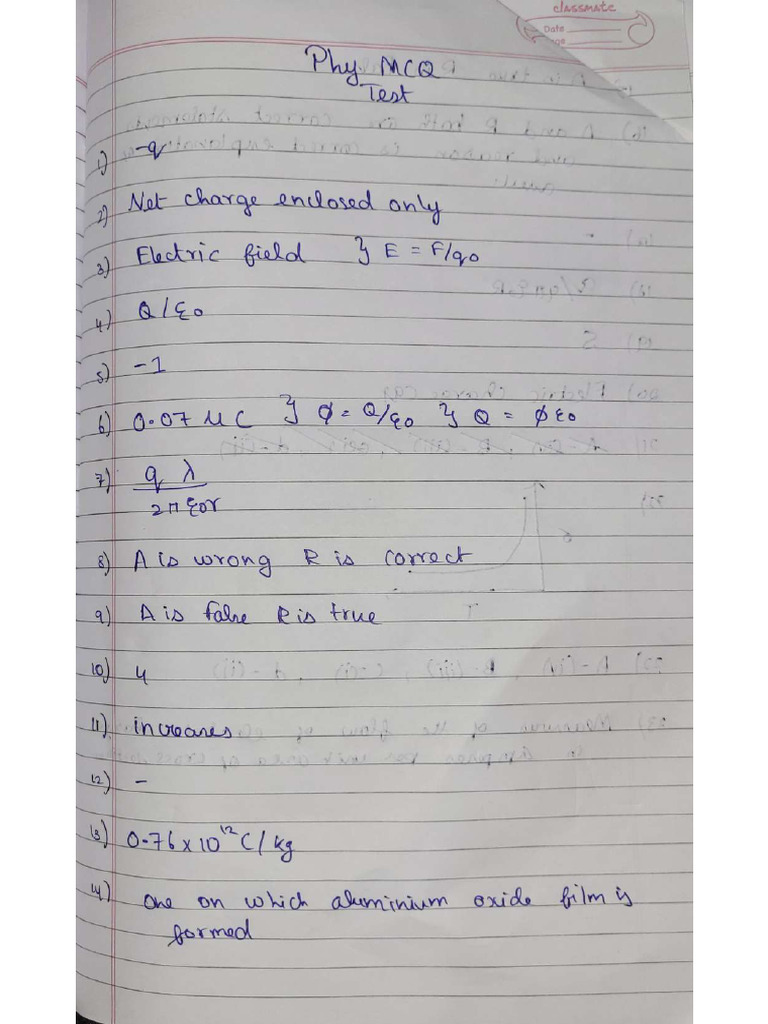 classmate
Date
Page
Phy MCQ
Test
1) -q
2) Net charge enclosed only
3) Electric field } E = F/q0
4) Q/ε0
5) -1
6) 0.07 μC } ϕ = Q/ε0 } Q = ϕε0
7) q λ
2π ε0r
8) A is wrong R is correct
9) A is false R is true
10) 4
11) increases
12) -
13) 0.76 x 10¹² C/kg
14) one on which aluminium oxide film is
formed